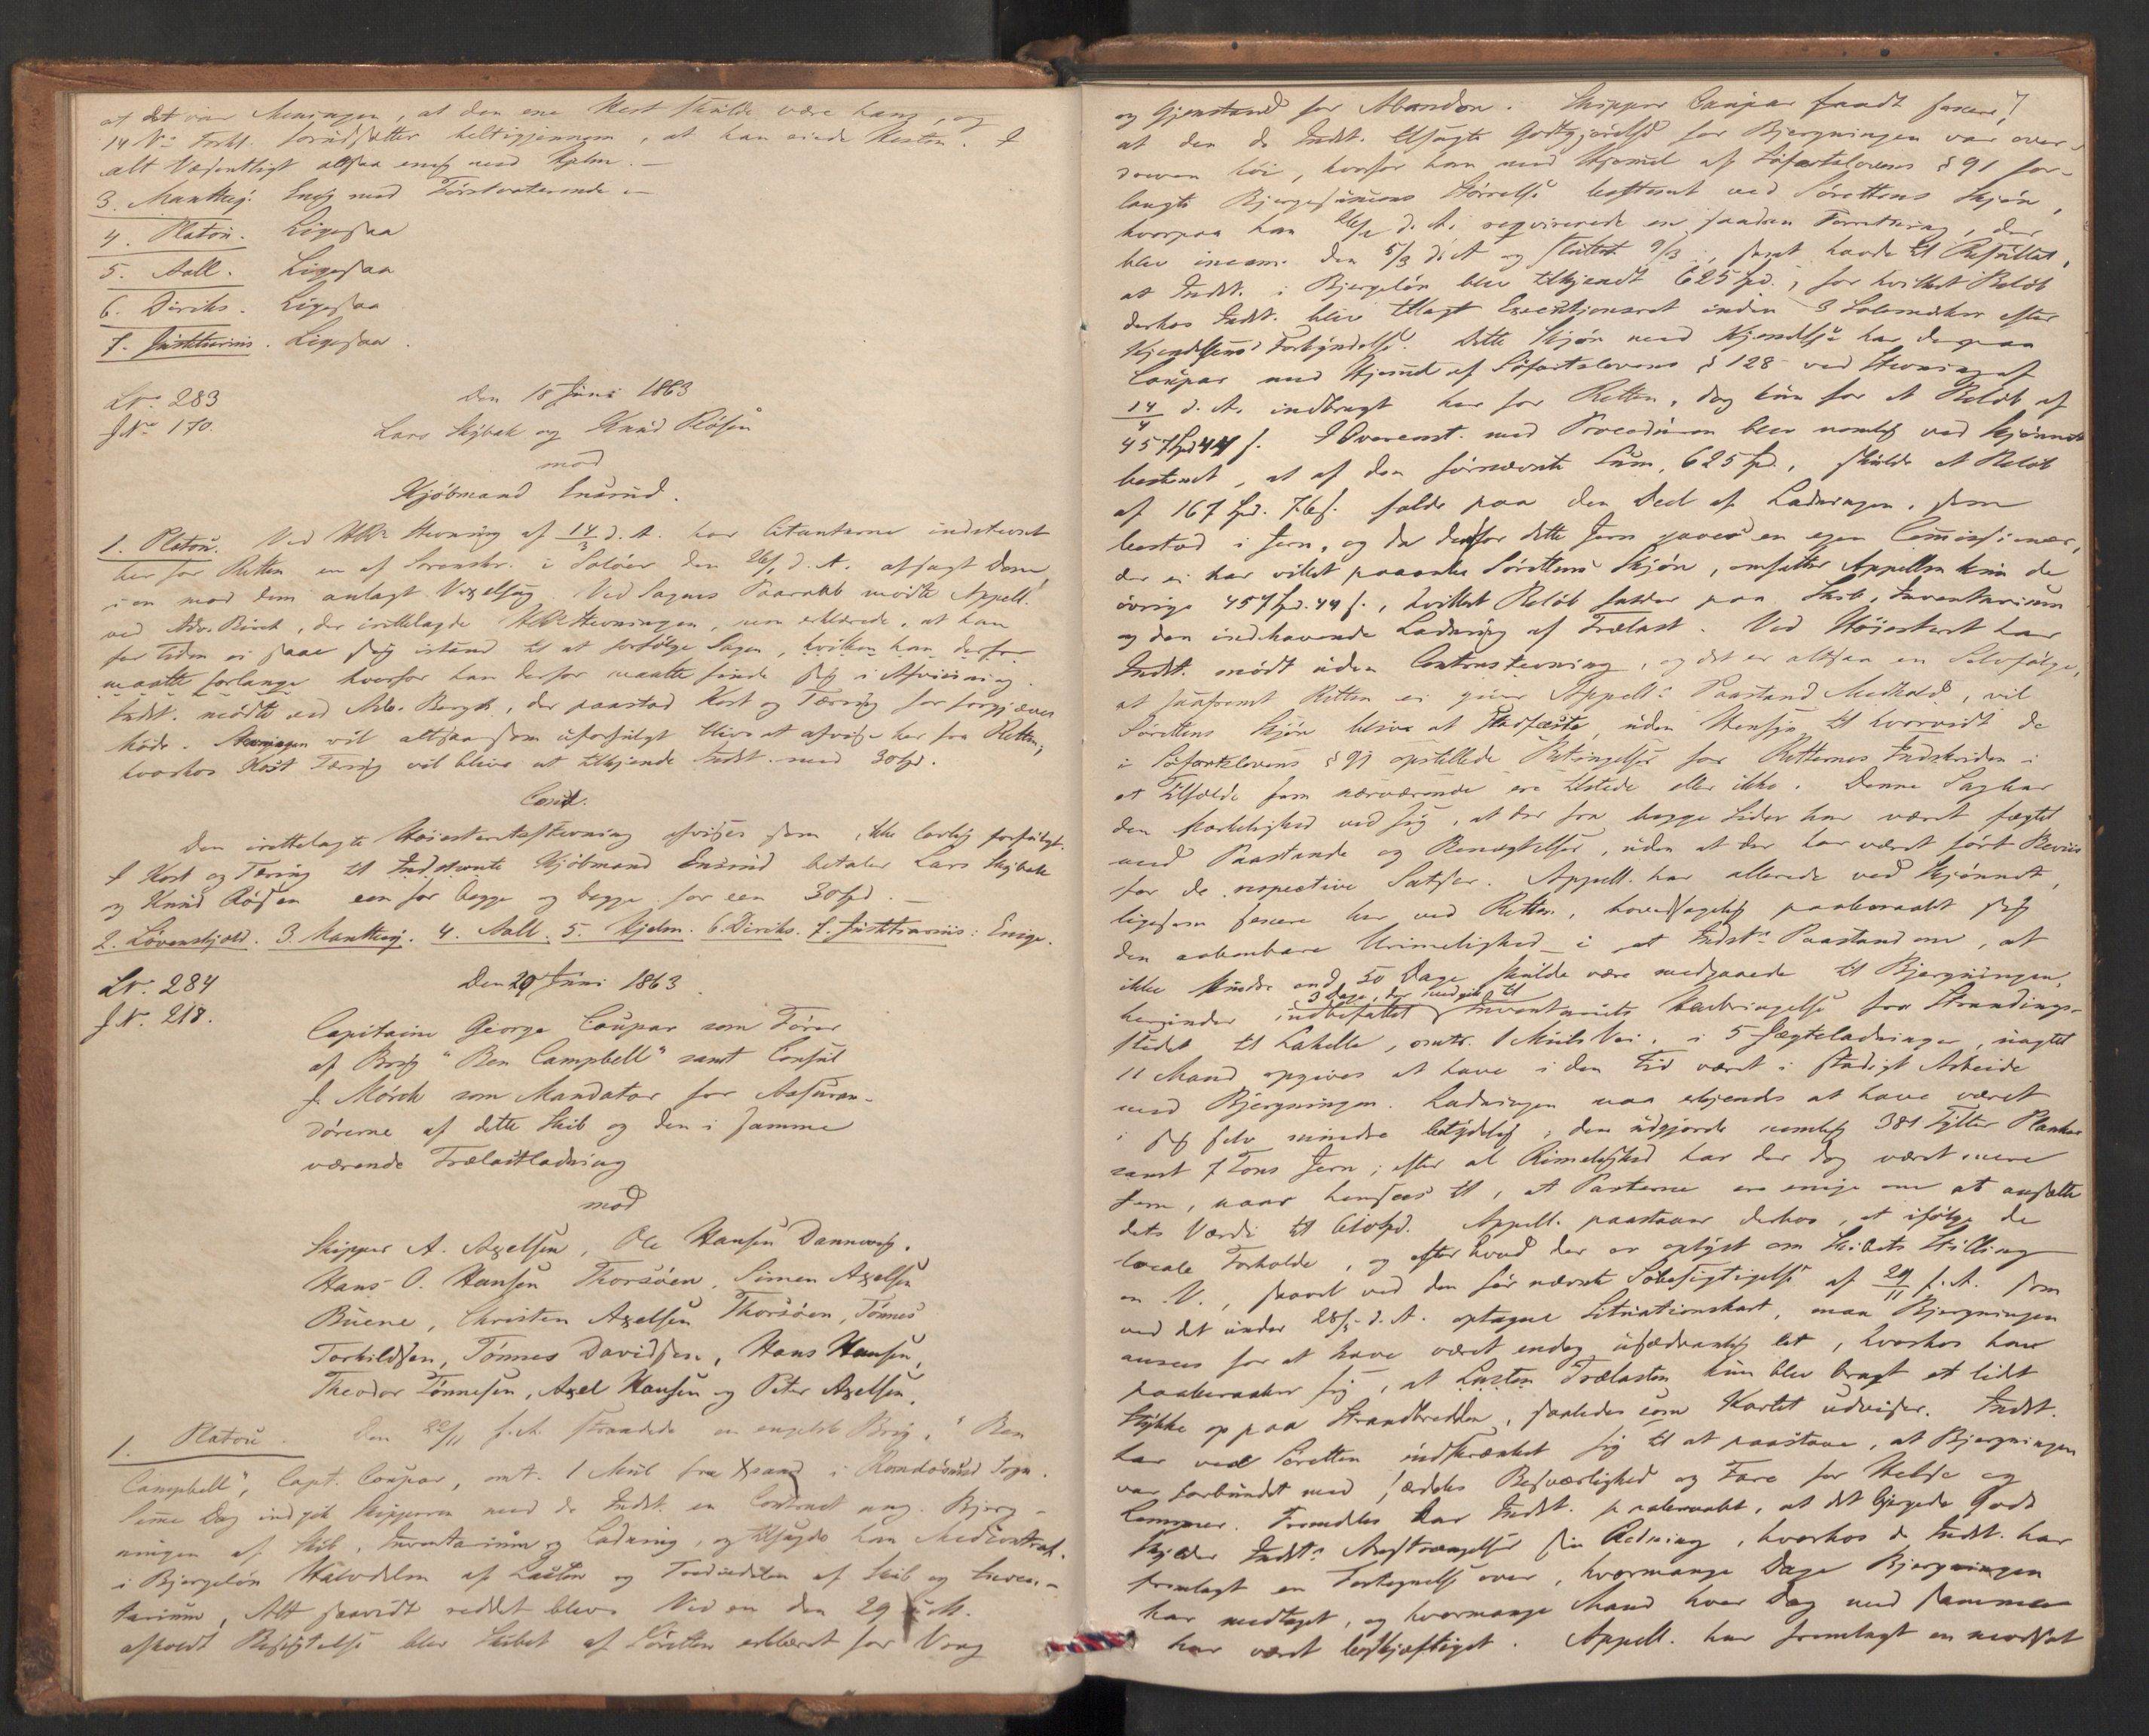 at det var Meningen, at den ene Hest skulde være hans, og
14 No. Forkl. forudsætter heltigjennem, at han eiede Hesten. I
alt Væsentligt altsaa enig med Hjelm. —
3. Manthey: Enig med Førstvoterende —
4. Platou. Ligesaa
5. Aall. Ligesaa
6. Diriks. Ligesaa
7. Justitiarius. Ligesaa.
Den 18 Juni 1863
Lr. 283
J No. 170.
Lars Skybak og Knud Røsen
mod
Kjøbmand Ensrud.
1. Platou. Ved HR. Stevning af 14/3 d. A. har Citanterne indstevnet
her for Retten en af Sorenskr. i Soløer den 26/1 d. A. afsagt Dom,
i en mod dem anlagt Vexelsag. Ved Sagens Paaraab mødte Appell.
ved Adv. Birch, der irettelagde HR. Stevningen, men erklærede, at han
for Tiden ei saae sig istand til at forfølge Sagen, hvilken han derfor
maatte forlange hvorfor han derfor maatte finde sig i Afvisning.
Indst. mødte ved Adv. Bergh, der paastod Kost og Tæring for forgjæves
Møde. Stevningen vil altsaa som uforfulgt blive at afvise her fra Retten,
hvorhos Kost Tæring vil blive at tilkjende Indst. med 30 Spd.
Concl.
Den irettelagte Høiesteretsstevning afvises som ikke lovlig forfulgt.
I Kost og Tæring til Indstevnte Kjøbmand Ensrud betaler Lars Skybak
og Knud Røsen een for begge og begge for een 30 Spd. —
2. Løvenskjold. 3. Manthey. 4. Aall. 5. Hjelm. 6. Diriks. 7. Justitiarius: Enige.
Den 20 Juni 1863.
Lr. 284
J N. 218.
Capitaine George Coupar som Fører
af Brig "Ben Campbell" samt Consul
J. Mørch som Mandatar for Assuran-
dørerne af dette Skib og den i samme
værende Trælastladning
mod
Skipper A. Axelsen, Ole Hansen Dannevig,
Hans O. Hansen Thorsøen, Simen Axelsen
Buene, Christen Axelsen Thorsøen, Tønnes
Torkildsen, Tønnes Davidsen, Hans Hansen,
Theodor Tønnesen, Axel Hansen og Peter Axelsen.
1. Platou. Den 22/11 f. A. strandede en engelsk Brig, "Ben
Campbell", Capt. Coupar, omt. 1 Miil fra Xsand i Randøsund Sogn.
Samme Dag indgik Skipperen med de Indst. en Contract ang. Bjerg-
ningen af Skib, Inventarium og Ladning, og tilsagde han Medcontrah.
i Bjergeløn Halvdelen af Lasten og Trediedelen af Skib og Inven-
tarium, Alt saavidt reddet blev. Ved en den 29 s. M.
afholdt Besigtelse blev Skibet af Søretten erklæret for Vrag
og Gjenstand for Abandon. Skipper Coupar fandt senere,
at den de Indst. tilsagte Godtgjørelse for Bjergningen var over-
dreven høi, hvorfor han med Hjemmel af Søfartslovens § 91 for-
langte Bjergelønnens Størrelse bestemt ved Sørettens Skjøn,
hvorpaa han 26/2 d. A. reqvirerede en saadan Forretning, der
blev incam. den 5/3 d. A. og sluttet 9/3, samt havde til Resultat,
at Indst. i Bjergeløn blev tilkjendt 625 Spd., for hvilket Beløb
derhos Indst. blev tillagt Executionsret inden 3 Solemærker efter
Kjendelsens Forkyndelse. Dette Skjøn med Kjendelse har derpaa
Coupar med Hjemmel af Søfartslovens § 128 ved Stevning af
14/4 d. A. indbragt her for Retten, dog kun for et Beløb af
457 Spd 44 s. I Overenst. med Proceduren blev nemlig ved Skjønnet
bestemt, at af denførnævnte Sum, 625 Spd., skulde et Beløb
af 167 Spd. 76 s. falde paa den Deel af Ladningen, som
bestod i Jern, og da derfor dette Jern gaves en egen Comissionær,
der ei har villet paaanke Sørettens Skjøn, omfatter Appellen kun de
øvrige 457 Spd. 44 s., hvilket Beløb falder paa Skib, Inventarium
og den indehavende Ladning af Trælast. Ved Høiesteret har
Indst. mødt uden Contrastevning, og det er altsaa en Selvfølge,
at saafremt Retten ei giver Appell.s Paastand Medhold, vil
Sørettens Skjøn blive at stadfæste, uden Hensyn til hvorvidt de
i Søfartslovens § 91 opstillede Betingelser for Retternes Indskriden i
et Tilfælde som nærværende ere tilstede eller ikke. Denne Sag har
den Mærkelighed ved sig, at der fra begge Sider har været fægtet
med Paastande og Benægtelser, uden at der har været ført Beviis
for de respective Satser. Appell. har allerede ved Skjønnet,
ligesom senere her ved Retten, hovedsagelig paaberaabt sig
den aabenbare Urimelighed i at Indst.s Paastand om, at
ikke mindre end 50 Dage skulde være medgaaede til Bjergningen,
3 Dage, der medgik til
herunder indbefattet Inventariets Henbringelse fra Strandings-
stedet til Lahelle, omtr. 1 Miils Vei, i 5 Jægteladninger, uagtet
11 Mand opgives at have i den Tid været i stadigt Arbeide
med Bjergningen. Ladningen maa erkjendes at have været
i sig selv mindre betydelig; den udgjorde nemlig 381 Tylter Planker
samt 7 Tons Jern; efter al Rimelighed har der dog været mere
Jern, naar hensees til, at Parterne ere enige om at ansætte
dets Værdi til 610 Spd. Appell. paastaaer derhos, at ifølge de
locale Forholde, og efter hvad der er oplyst om Skibets Stilling
m. V., saavel ved den før nævnte Søbesigtigelse af 29/11 f. A. som
ved det under 28/5 d. A. optagne Situationskart, maa Bjergningen
ansees for at have været endog usædvanlig let, hvorhos han
paaberaaber sig, at Lasten Trælasten kun blev bragt et lidt
Stykke op paa Strandbredden, saaledes som Kartet udviser. Indst.
har ved Søretten indskrænket sig til at paastaae, at Bjergningen
var forbundet med særdeles Besværlighed og Fare for Helse og
Lemmer. Fremdeles har Indst. paaberaabt, at det bjergede Gods
skylder Indst.s Anstrengelser sin Redning, hvorhos de Indst. har
fremlagt en Fortegnelse over, hvormange Dage Bjergningen
har medtaget, og hvormange Mand hver Dag med samme
har været beskjæftiget. Appell. har fremlagt en modsat